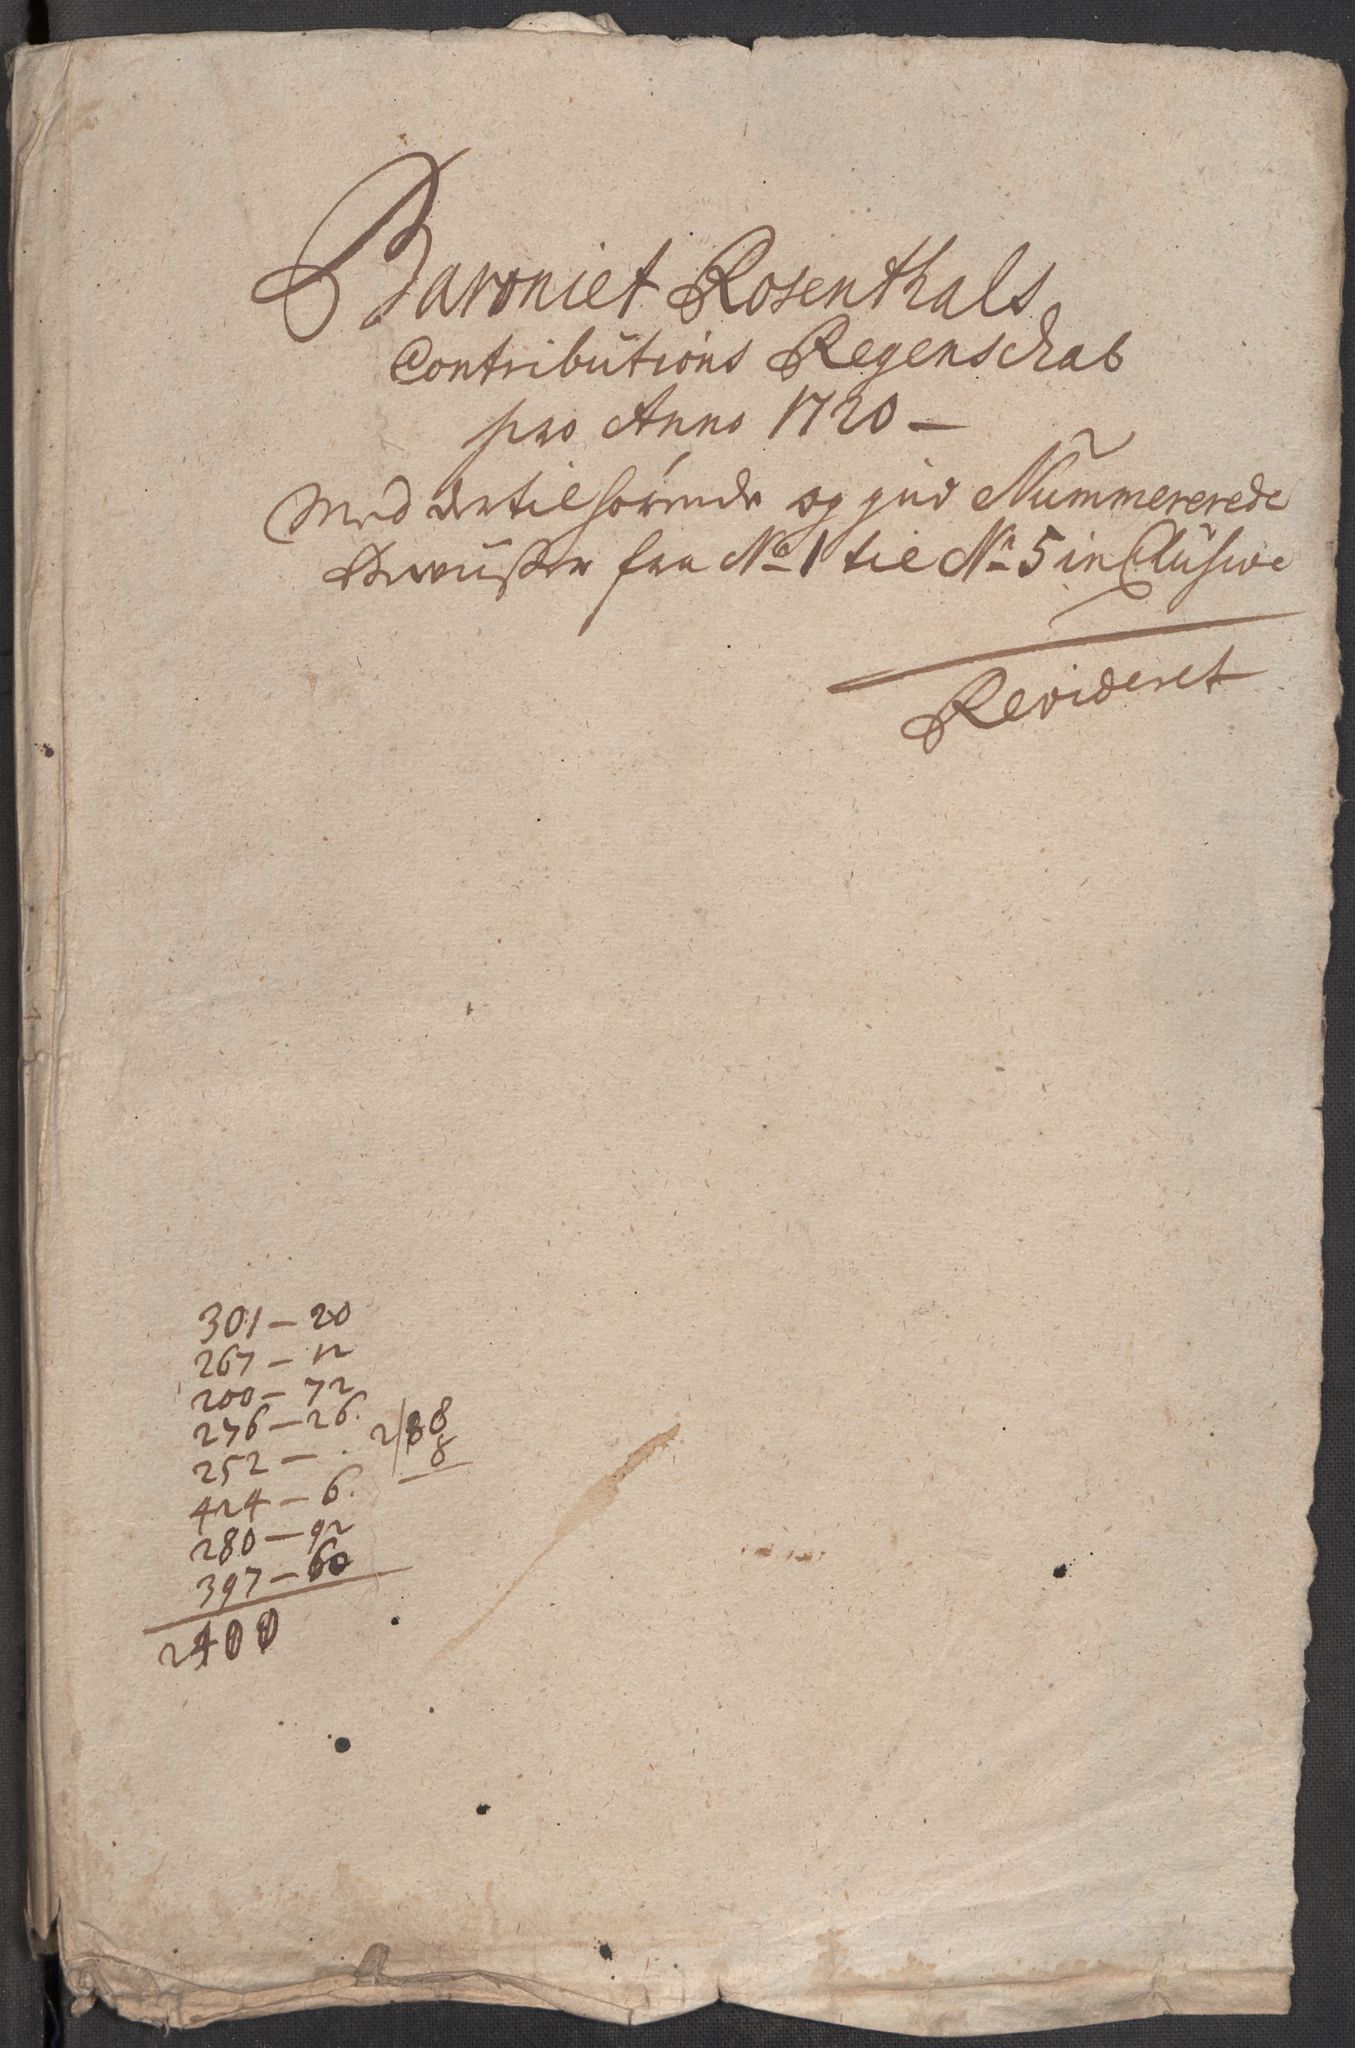 Baroniet Rosenthals
Contributions Regenschab
pro Anno 1720 –
Med dertil hørende og Nummererede
Bewiißer fra No 1 til No 5 inClusive
Revideret
301 – 20
267 – 12
200 – 72
276 – 26.
252 – .
424 – 6.
280 – 92
397 – 60
2400
2/88
8